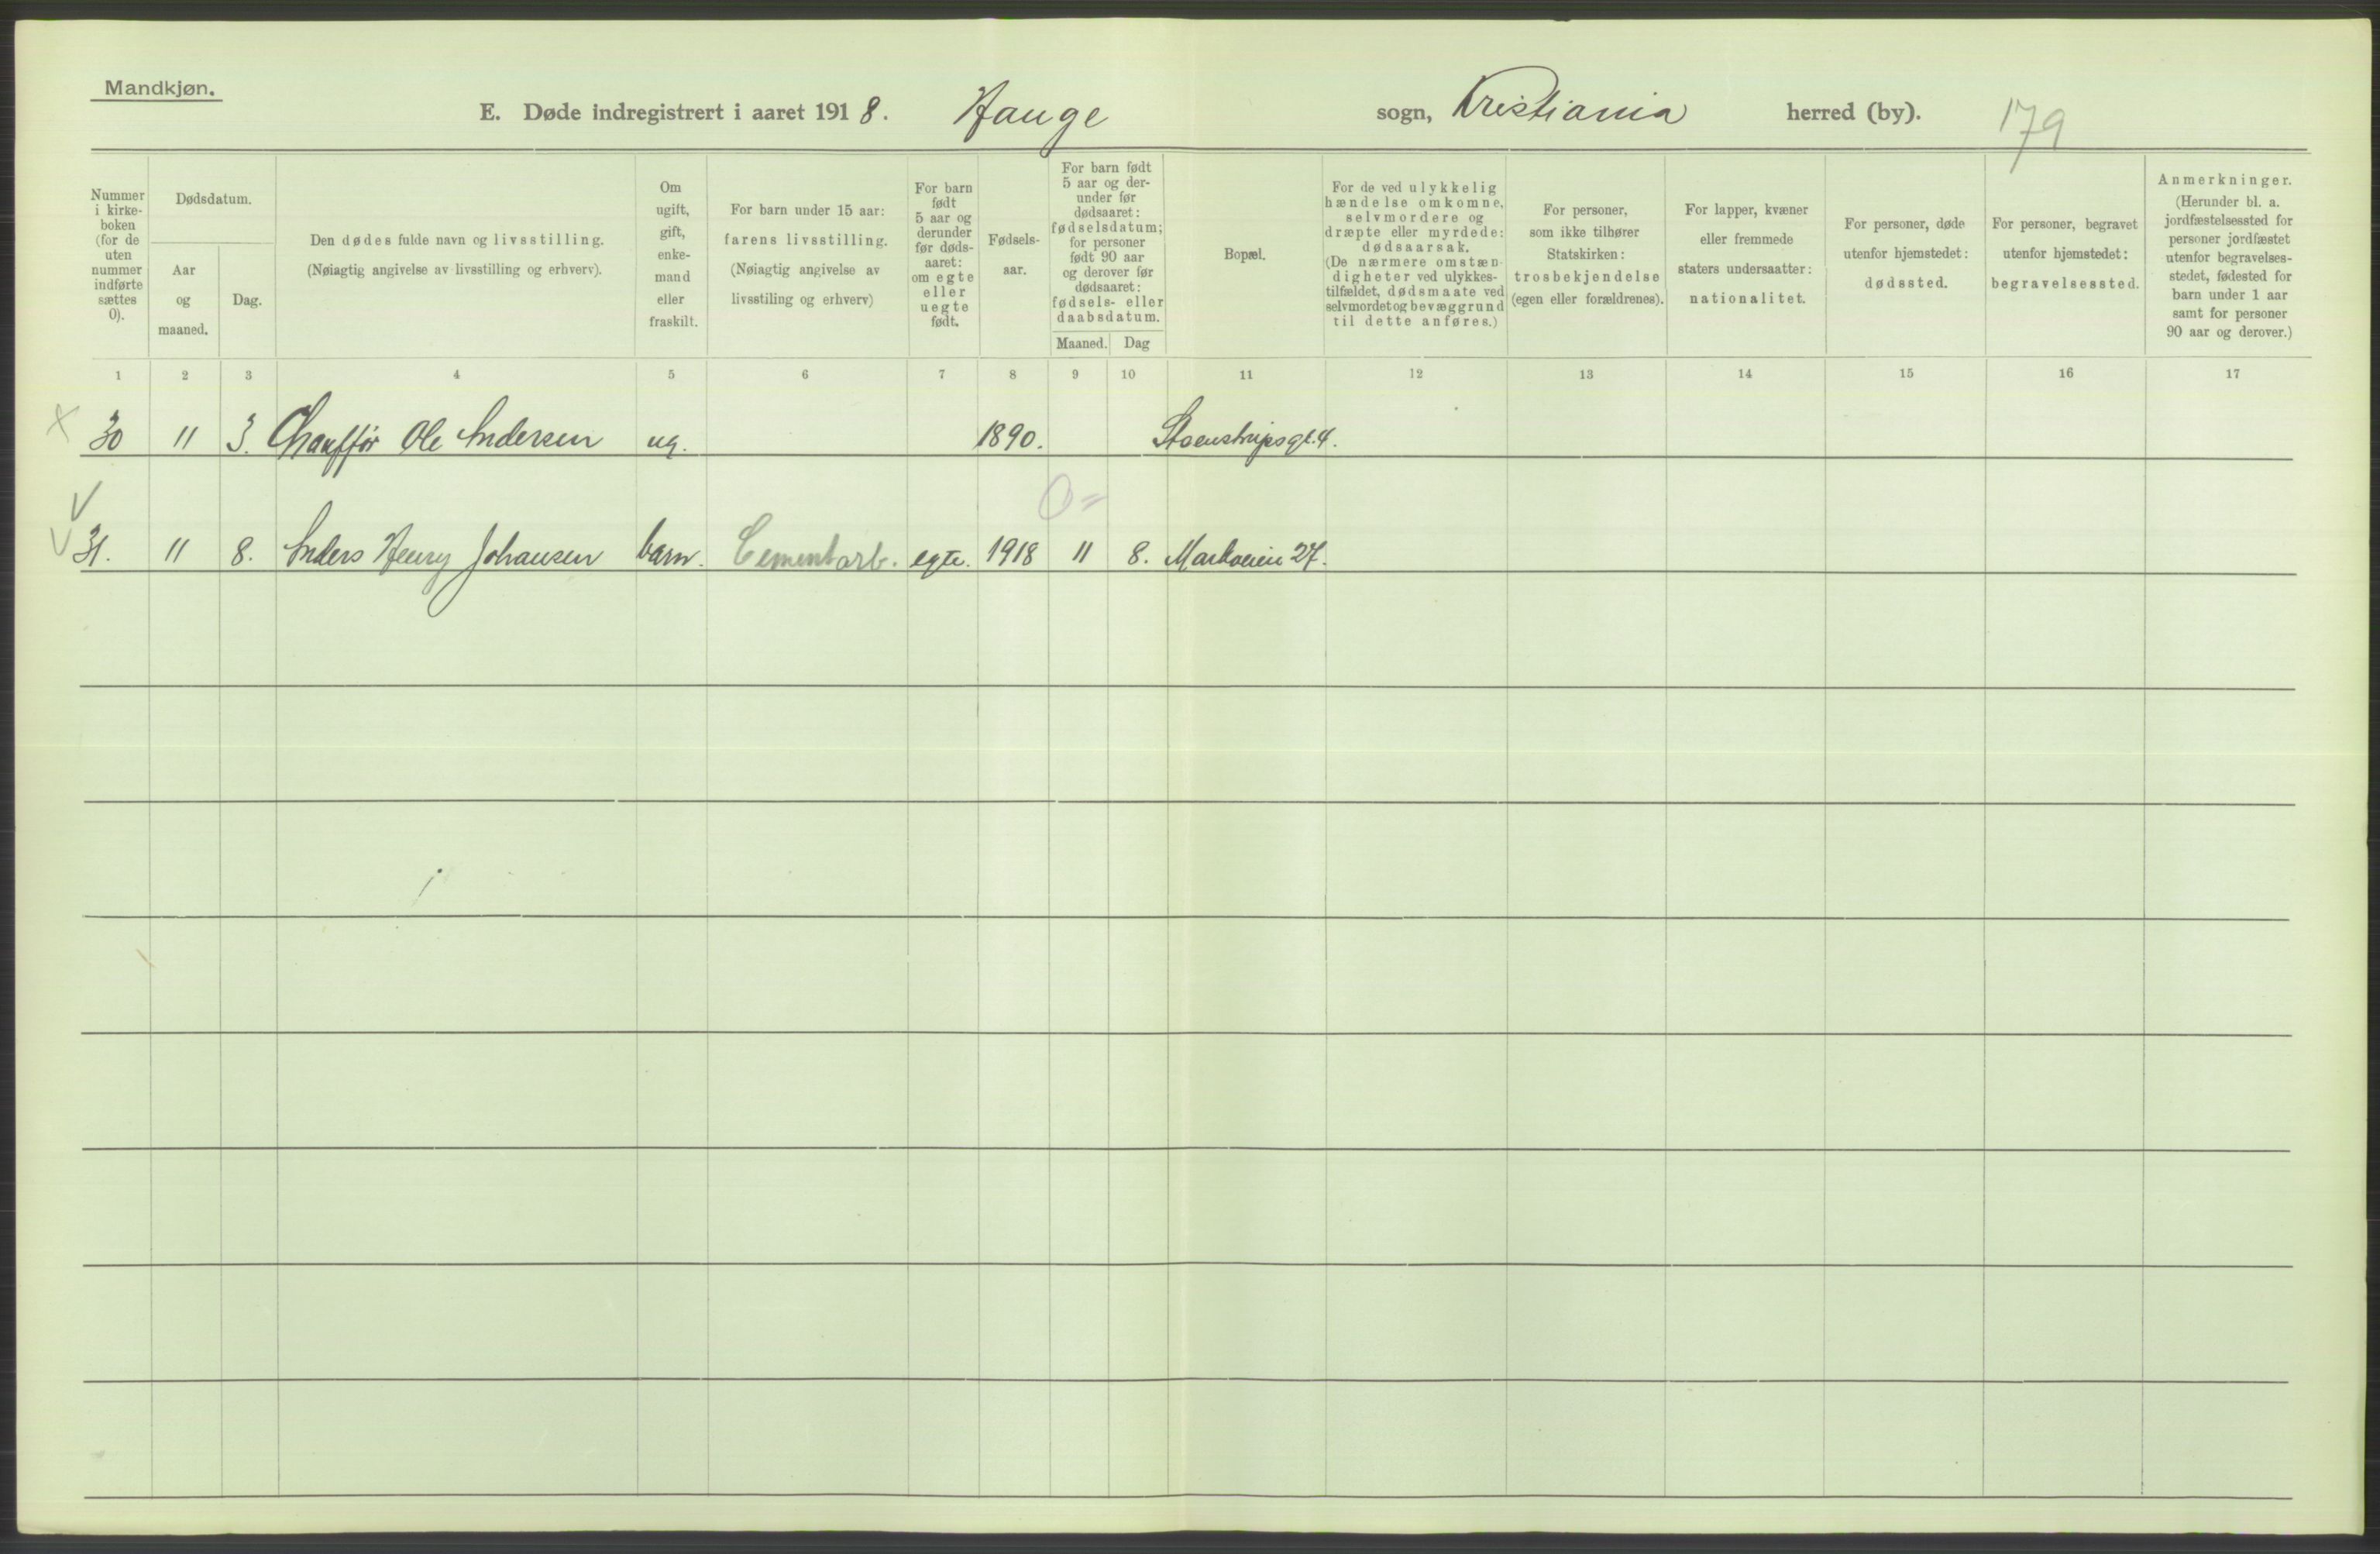 Mandkjøn.
E. Døde indregistrert i aaret 1918. Hauge sogn, Kristiania herred (by). 179
Nummer i kirke- boken (for de uten nummer indførte sættes 0).
Dødsdatum.
Aar og maaned.
Dag.
Den dødes fulde navn og livsstilling.
(Nøiagtig angivelse av livsstilling og erhverv).
Om ugift, gift, enke- mand eller fraskilt.
For barn under 15 aar:
farens livsstilling.
(Nøiagtig angivelse av
livsstiling og erhverv)
For barn født 5 aar og derunder før døds- aaret: om egte eller uegte født.
Fødsels- aar.
For barn født 5 aar og der- under før dødsaaret: fødselsdatum; for personer født 90 aar og derover før dødsaaret: fødsels- eller daabsdatum.
Maaned. Dag
Bopæl.
For de ved ulykkelig hændelse omkomne, selvmordere og dræpte eller myrdede: dødsaarsak. (De nærmere omstæn- digheter ved ulykkes- tilfældet, dødsmaate ved selvmordet og bevæggrund til dette anføres.)
For personer, som ikke tilhører Statskirken: trosbekjendelse (egen eller forældrenes).
For lapper, kvæner eller fremmede staters undersaatter: nationalitet.
For personer, døde utenfor hjemstedet: dødssted.
For personer, begravet utenfor hjemstedet: begravelsessted.
Anmerkninger. (Herunder bl. a. jordfæstelsessted for personer jordfæstet utenfor begravelses- stedet, fødested for barn under 1 aar samt for personer 90 aar og derover.)
1 2 3 4 5 6 7 8 9 10 11 12 13 14 15 16 17
30 11 3. Chauffør Ole Andersen ug. 1890. Steenstrupsgt. 4.
0=
31. 11 8. Anders Henry Johansen barn. Cementarb. egte. 1918 11 8. Markveien 27.